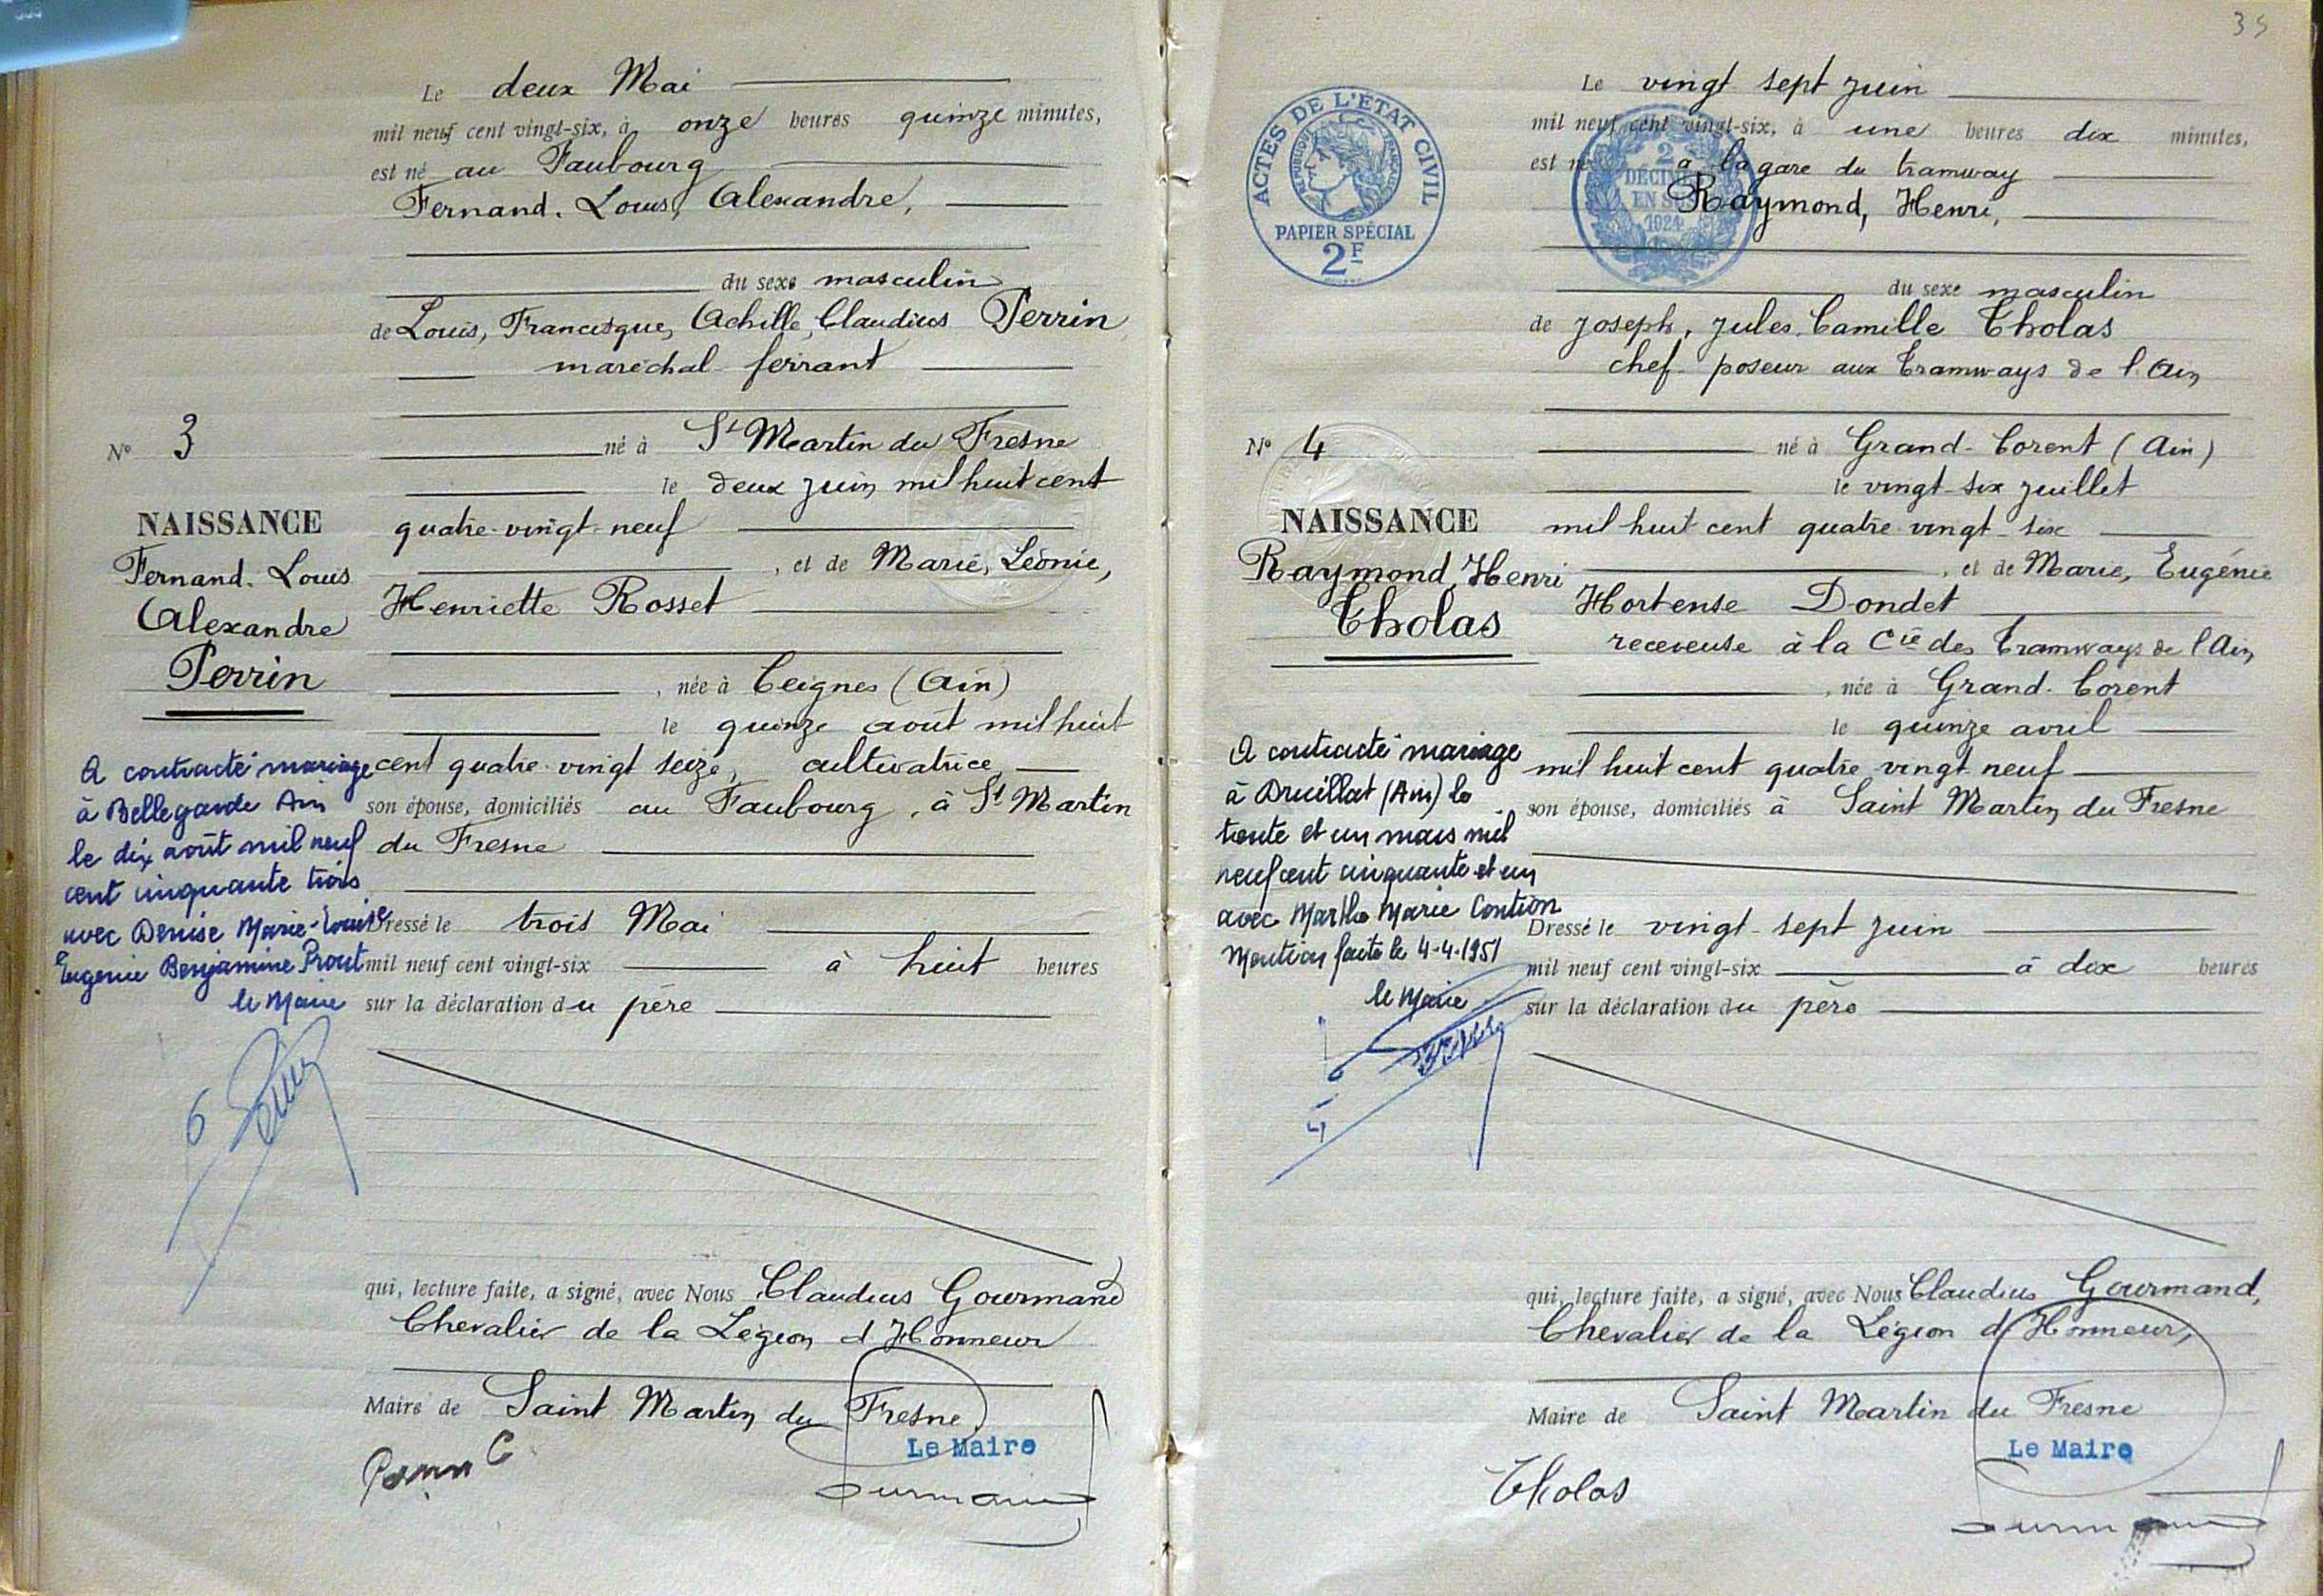 Le deux Mai
mil neuf cent vingt-six, à onze heures quinze minutes,
est né au Faubourg
Fernand, Louis, Alexandre,
du sexe masculin
de Louis, Francisque, Achille, Claudius Perrin
maréchal-ferrant
N° 3
né à St Martin du Fresne
le deux juin mil huit cent
NAISSANCE
quatre-vingt-neuf
Fernand. Louis
Alexandre
Perrin
, et de Marie, Léonie,
Henriette Rosset
, née à Ceignes (Ain)
le quinze août mil huit
cent quatre-vingt seize, cultivatrice
son épouse, domiciliés au Faubourg, à St Martin
du Fresne
A contracté mariage
à Bellegarde Ain
le dix août mil neuf
cent cinquante trois
avec Denise Marie-Louise
Eugenie Benjamine Prout
le Maire
Dressé le trois Mai
mil neuf cent vingt-six à huit heures
sur la déclaration du père
qui, lecture faite, a signé, avec Nous Claudius Gourmand
Chevalier de la Légion d'Honneur
Maire de Saint Martin du Fresne
Le Maire
Perrin C
Gourmand
35
ACTES DE L'ÉTAT CIVIL
RÉPUBLIQUE FRANÇAISE
PAPIER SPÉCIAL
2F
2
DÉCIMES
EN SUS
1924
Le vingt sept juin
mil neuf cent vingt-six, à une heures dix minutes,
est né à la gare du tramway
Raymond, Henri,
du sexe masculin
de Joseph, Jules, Camille Tholas
chef-poseur aux Tramways de l'Ain
N° 4
né à Grand-Corent (Ain)
le vingt-six juillet
NAISSANCE
mil huit cent quatre-vingt-six
Raymond, Henri
Tholas
, et de Marie, Eugénie
Hortense Dondet
receveuse à la Cie des Tramways de l'Ain
, née à Grand-Corent
le quinze avril
mil huit cent quatre-vingt neuf
son épouse, domiciliés à Saint Martin du Fresne
A contracté mariage
à Druillat (Ain) le
trente et un mars mil
neuf cent cinquante et un
avec Marthe Marie Contion
Mention faite le 4-4-1951
le Maire
Dressé le vingt-sept juin
mil neuf cent vingt-six à dix heures
sur la déclaration du père
qui, lecture faite, a signé, avec Nous Claudius Gourmand,
Chevalier de la Légion d'Honneur,
Maire de Saint Martin du Fresne
Le Maire
Tholas
Gourmand